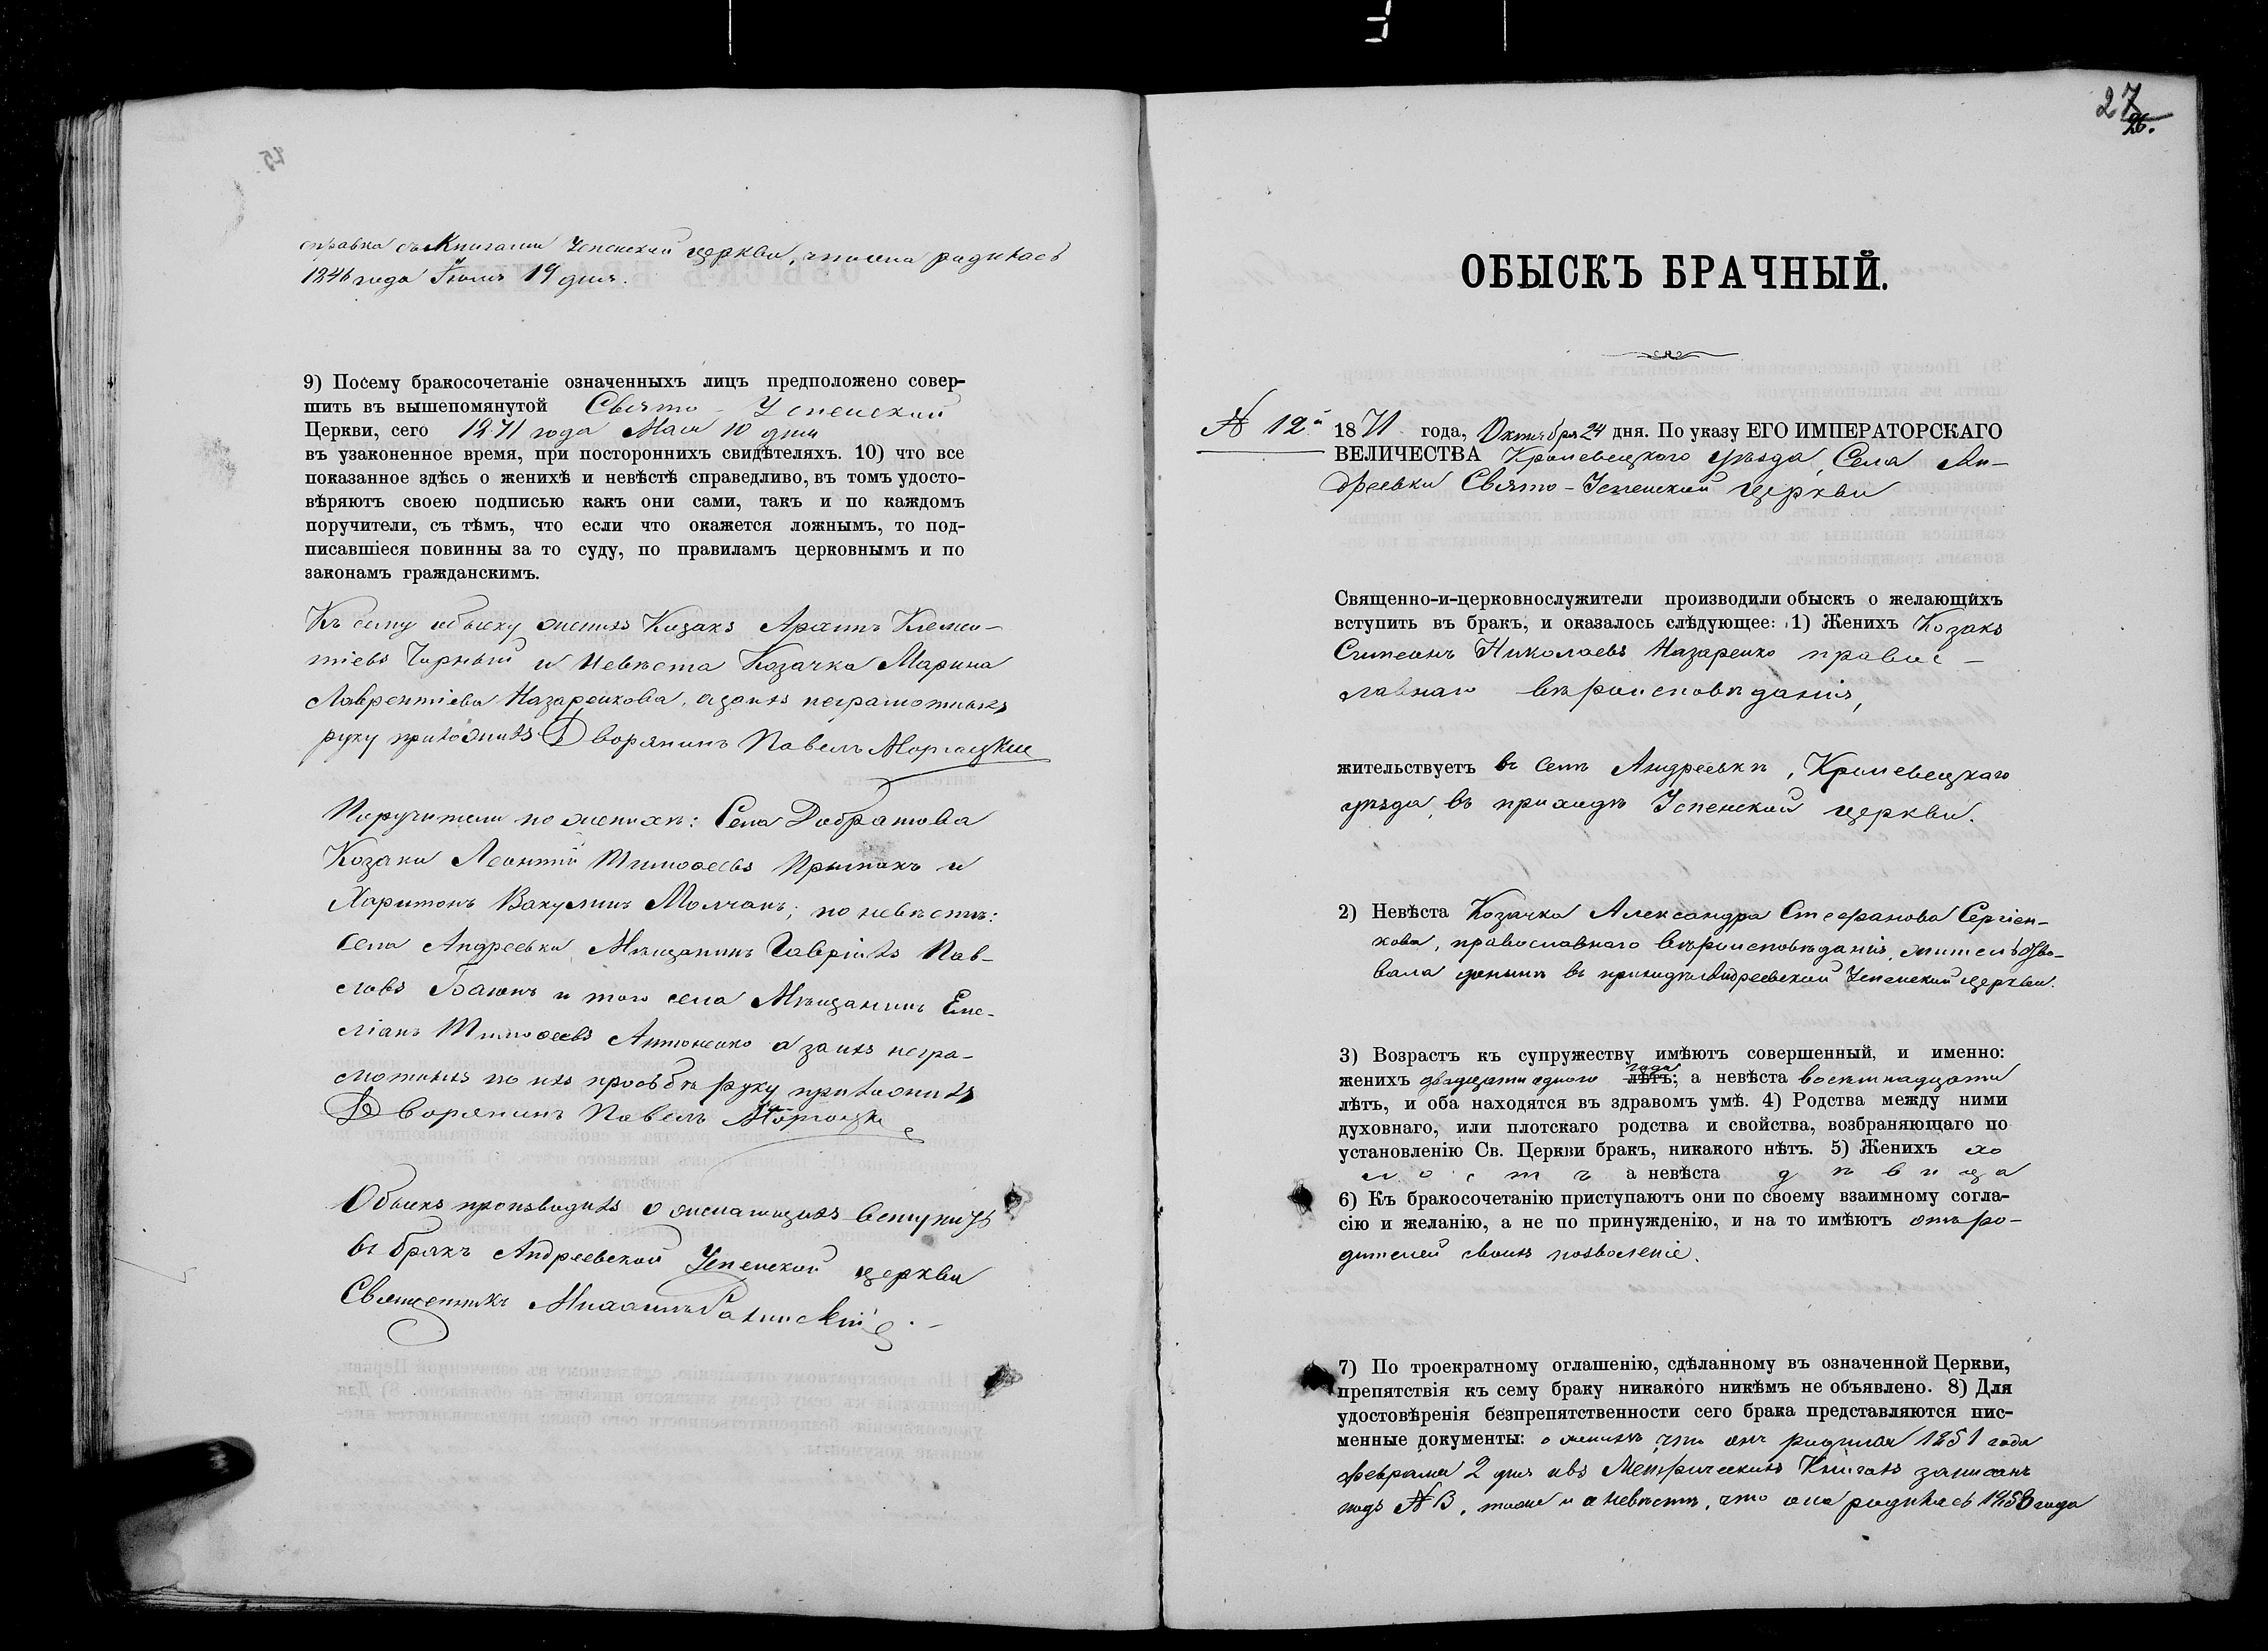 справка съ Книгами Успенской церкви, что она родилась
1846 года Іюля 19 дня.
9) Посему бракосочетаніе означенныхъ лицъ предположено совер-
шить въ вышепомянутой Свято - Успенской
Церкви, сего 1871 года Мая 10 дня
въ узаконенное время, при постороннихъ свидѣтеляхъ. 10) что все
показанное здѣсь о женихѣ и невѣстѣ справедливо, въ томъ удосто-
вѣряютъ своею подписью какъ они сами, такъ и по каждомъ
поручители, съ тѣмъ, что если что окажется ложнымъ, то под-
писавшіеся повинны за то суду, по правиламъ церковнымъ и по
законамъ гражданскимъ.
Къ сему обыску женихъ Козакъ Климен-
тіевъ Чорный и невѣста Козачка Марина
Лаврентіева Назаренкова, а за нихъ неграмотныхъ
руку приложилъ Дворянинъ Павелъ
Поручители по женихѣ: Села Добратова
Козаки Леонтій Тимофеевъ и
Харитонъ Вакулинъ Молчанъ; по невѣстѣ:
Села Андреевки Мѣщанинъ Гавріилъ Пав-
ловъ и того села Мѣщанинъ Еме-
ліанъ Тимофеевъ Антоненко а за ихъ негра-
мотныхъ по ихъ прозьбѣ руку приложилъ
Дворянинъ Павелъ
Обыскъ производилъ о желающихъ вступить
въ бракъ Андреевской Успенской церкви
Священникъ Михаилъ
27
26.
ОБЫСКЪ БРАЧНЫЙ.
№ 12й 1871 года, Октября 24 дня. По указу ЕГО ИМПЕРАТОРСКАГО
ВЕЛИЧЕСТВА Кролевецкого уѣзда, Села Ан-
дреевки Свято - Успенской церкви
Священно-и-церковнослужители производили обыскъ о желающихъ
вступить въ бракъ, и оказалось слѣдующее: 1) Женихъ Козакъ
Стефанъ Николаевъ Назаренко правос-
лавнаго вѣроисповѣданія,
жительствуетъ въ селѣ Андреевкѣ, Кролевецкаго
уѣзда, въ приходѣ Успенской церкви.
2) Невѣста Козачка Александра Стефанова Сергіен-
кова, православного вѣроисповѣданія, жительство-
вала донынѣ въ приходѣ Андреевской Успенской церкви.
3) Возрастъ къ супружеству имѣютъ совершенный, и именно:
женихъ двадцати одного года лѣтъ; а невѣста восемнадцати
лѣтъ, и оба находятся въ здравомъ умѣ. 4) Родства между ними
духовнаго, или плотскаго родства и свойства, возбраняющаго по
установленію Св. Церкви бракъ, никакого нѣтъ. 5) Женихъ хо
лостъ а невѣста дѣвица
6) Къ бракосочетанію приступаютъ они по своему взаимному согла-
сію и желанію, а не по принужденію, и на то имѣютъ отъ ро-
дителей своихъ позволеніе.
7) По троекратному оглашенію, сдѣланному въ означенной Церкви,
препятствія къ сему браку никакого никѣмъ не объявлено. 8) Для
удостовѣренія безпрепятственности сего брака представляются пис-
менные документы: о женихѣ, что онъ родился 1851 года
февраля 2 дня и въ Метрическихъ Книгахъ записанъ
подъ № 3, также и о невѣстѣ, что она родилась 1853 года